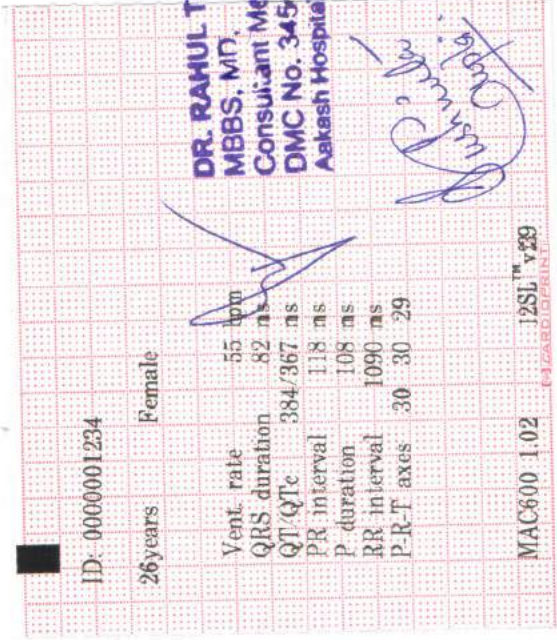 ID: 0000001234
26years Female
Vent. rate 55 bpm
QRS duration 82 ms
QT/QTc 384/367 ms
PR interval 118 ms
P duration 108 ms
RR interval 1090 ms
P-R-T axes 30 30 29
MAC600 1.02 12SL™ v239
DR. RAHUL T
MBBS, MD.
Consultant Me
DMC No. 345
Aakash Hospita